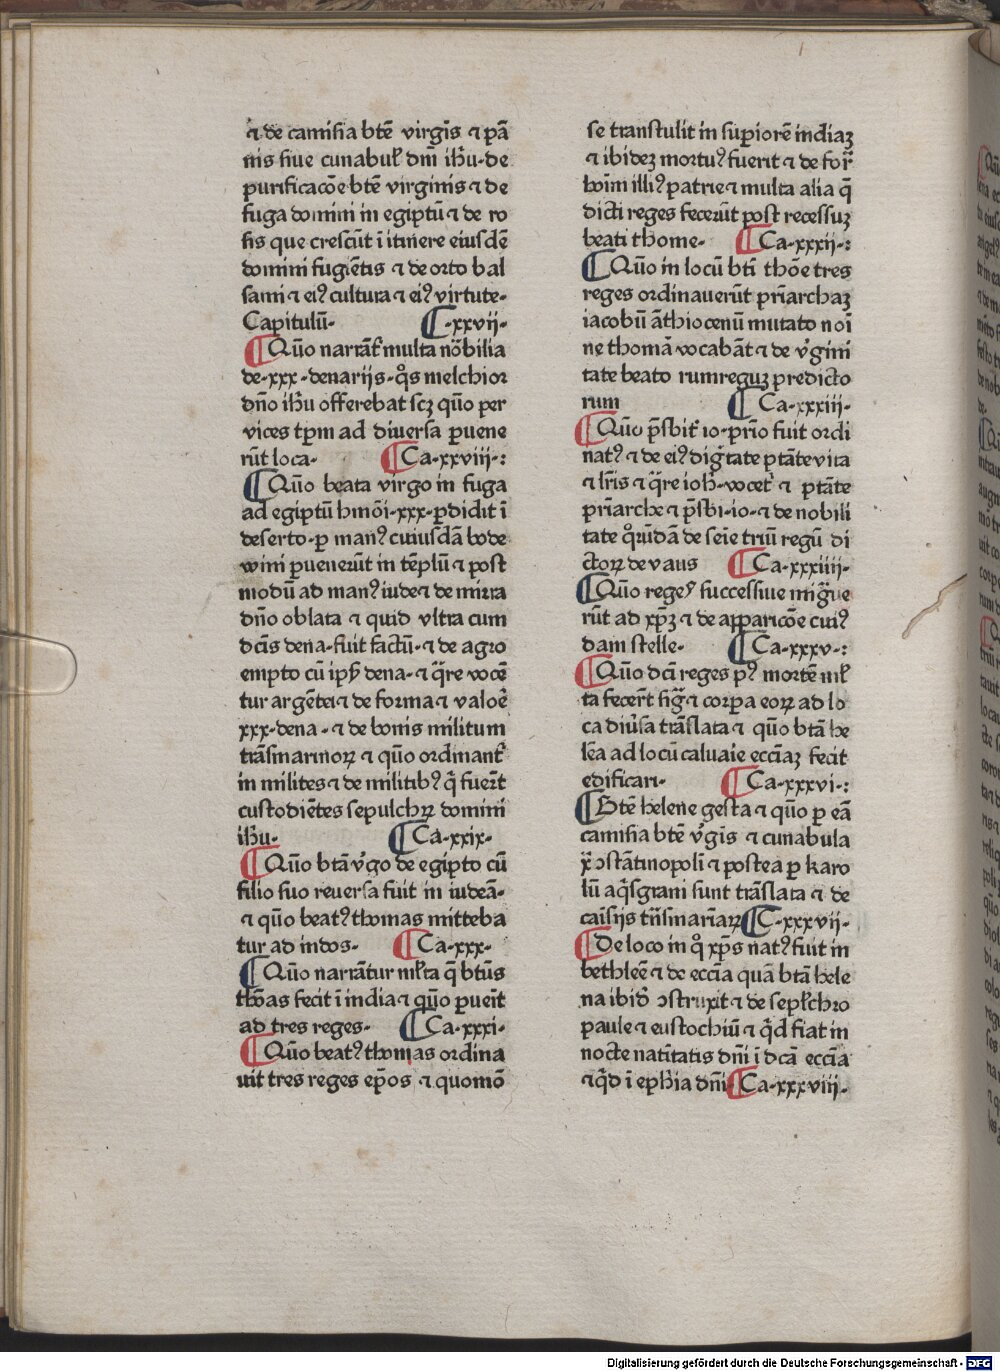 ⁊ de camisia btē virgīs ⁊ pā
nis siue cunabul' dnī ihū·de
purificacōe btē virginis ⁊ de
fuga domini in egiptū ⁊ de ro
sis que crescūt ī itinere eiusdē
domini fugiētis ⁊ de orto bal
sami ⁊ eiꝰ cultura ⁊ eiꝰ virtute·
Capitulū· ¶·xxvij·
¶Quō narrāt' multa nōbilia
de·xxx·denarijs·q̊s melchior
dn̄o ihū offerebat scꝫ quō per
vices tꝑm ad diuersa ꝑuene
rūt loca· ¶Ca·xxviij·:
¶Quō beata virgo in fuga
ad egiptū hmōi·xxx·ꝑdidit ī
deserto·ꝑ manꝰ cuiusdā bode
wini ꝑuenerūt in tēplū ⁊ post
modū ad manꝰ iude ⁊ de mirra
dn̄o oblata ⁊ quid vltra cum
dc̄is dena·fuit factū·⁊ de agro
empto cū ip̄s dena·⁊ q̄re vocē
tur argētei ⁊ de forma ⁊ valoē
xxx·dena·⁊ de bonis militum
trāsmarinoꝝ ⁊ quō ordinant'
in milites ⁊ de militibꝰ q̄ fuer̄t
custodiētes sepulchꝝ domini
ihū· ¶Ca·xxix·
¶Quō btā v̓go de egipto cū
filio suo reuersa fuit in iudeā·
⁊ quō beatꝰ thomas mitteba
tur ad indos· ¶Ca·xxx·
¶Quō narrātur ml'ta q̄ btūs
thōas fecit ī india ⁊ quō ꝑueīt
ad tres reges· ¶Ca·xxxi·
¶Quō beatꝰ thomas ordina
uit tres reges ep̄os ⁊ quomō
se transtulit in suꝑiorē indiaꝫ
⁊ ibideꝫ mortuꝰ fuerit ⁊ de for̄
hoīm illiꝰ patrie ⁊ multa alia q̄
dicti reges fecerūt post recessuꝫ
beati thome· ¶Ca·xxxij·:
¶Quō in locū btī thōe tres
reges ordinauerūt pr̄iarchaꝫ
iacobū āthiocenū mutato noī
ne thomā vocabāt ⁊ de v̓gini
tate beato rumreguꝫ predicto
rum ¶Ca·xxxiij·
¶Quō p̄sbit' io·pr̄io fuit ordi
natꝰ ⁊ de eiꝰ diḡtate ptāte vita
⁊ lr̄is ⁊ q̄re ioh·vocet' ⁊ ptāte
pr̄iarche ⁊ p̄sbi·io·⁊ de nobili
tate q̊rūdā de seīe triū regū di
ctoꝝ de vaus ¶Ca·xxxiiij·
¶Quō regeꝰ successiue mig̊ue
rūt ad xp̄ꝫ ⁊ de apparicōe cuiꝰ
dam stelle· ¶Ca·xxxv·:
¶Quō dcī reges pꝰ mortē ml'
ta fecer̄t sig̊ ⁊ corꝑa eoꝝ ad lo
ca diu̓sa trāslata ⁊ quō btā he
lēa ad locū caluaie ecc̄iaꝫ fecit
edificari· ¶Ca·xxxvi·:
¶Btē helene gesta ⁊ quō ꝑ eā
camisia btē v̓gīs ⁊ cunabula
x̄ ꝯstātinopoli ⁊ postea ꝑ karo
lū aq̄sgrani sunt trāslata ⁊ de
caīsijs tn̄smarīarꝝ ¶C·xxxvij·
¶De loco in q̊ xp̄s natꝰ fuit in
bethleē ⁊ de ecc̄ia quā btā hele
na ibid' ꝯstruxit ⁊ de sepl'chro
paule ⁊ eustochiū ⁊ q̇d fiat in
nocte natītatis dnī ī dcā ecc̄ia
⁊ q̇d ī ephīa dnī ¶Ca·xxxviij·
Digitalisierung gefördert durch die Deutsche Forschungsgemeinschaft - DFG